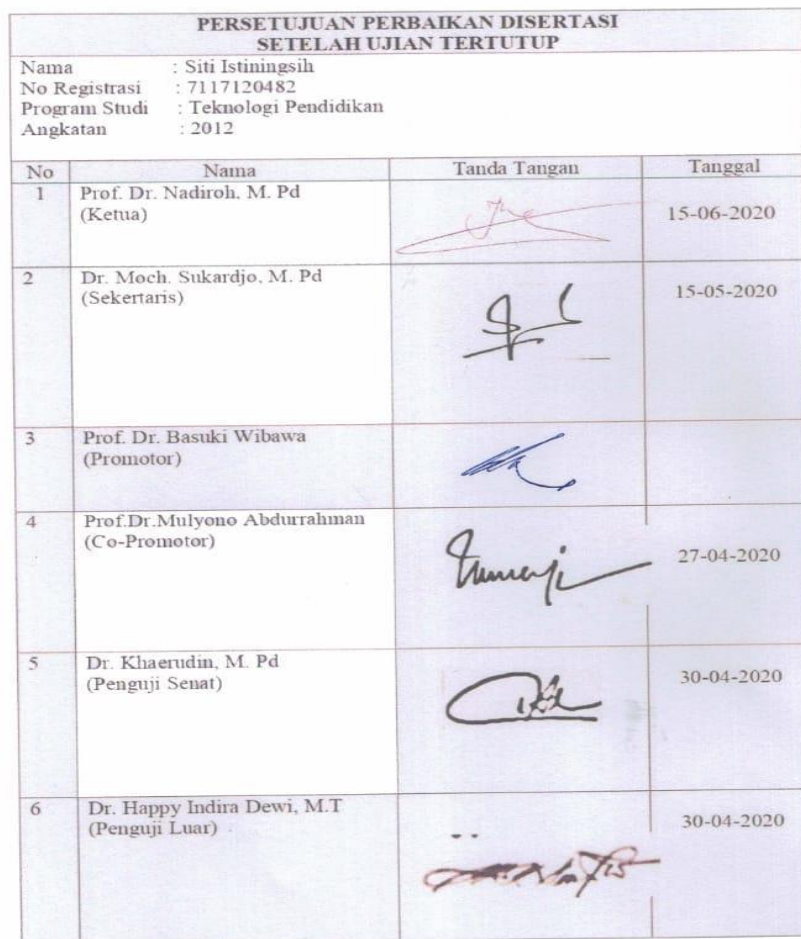 PERSETUJUAN PERBAIKAN DISERTASI
SETELAH UJIAN TERTUTUP
Nama : Siti Istiningsih
No Registrasi : 7117120482
Program Studi : Teknologi Pendidikan
Angkatan : 2012
No Nama Tanda Tangan Tanggal
1 Prof. Dr. Nadiroh. M. Pd
(Ketua)
15-06-2020
2 Dr. Moch. Sukardjo, M. Pd
(Sekertaris)
15-05-2020
3 Prof. Dr. Basuki Wibawa
(Promotor)
4 Prof.Dr.Mulyono Abdurrahman
(Co-Promotor)
27-04-2020
5 Dr. Khaerudin, M. Pd
(Penguji Senat)
30-04-2020
6 Dr. Happy Indira Dewi, M.T
(Penguji Luar)
30-04-2020